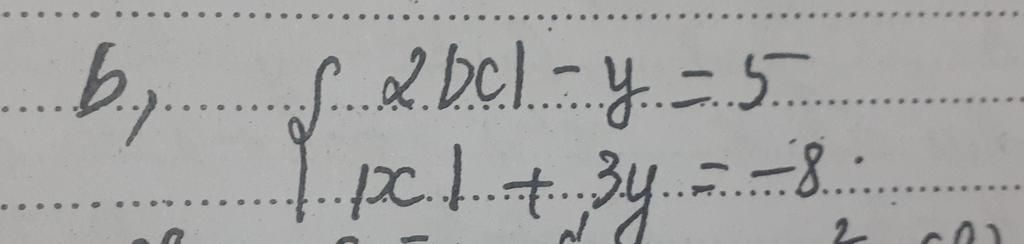 b, { 2|x| - y = 5
|x| + 3y = -8.